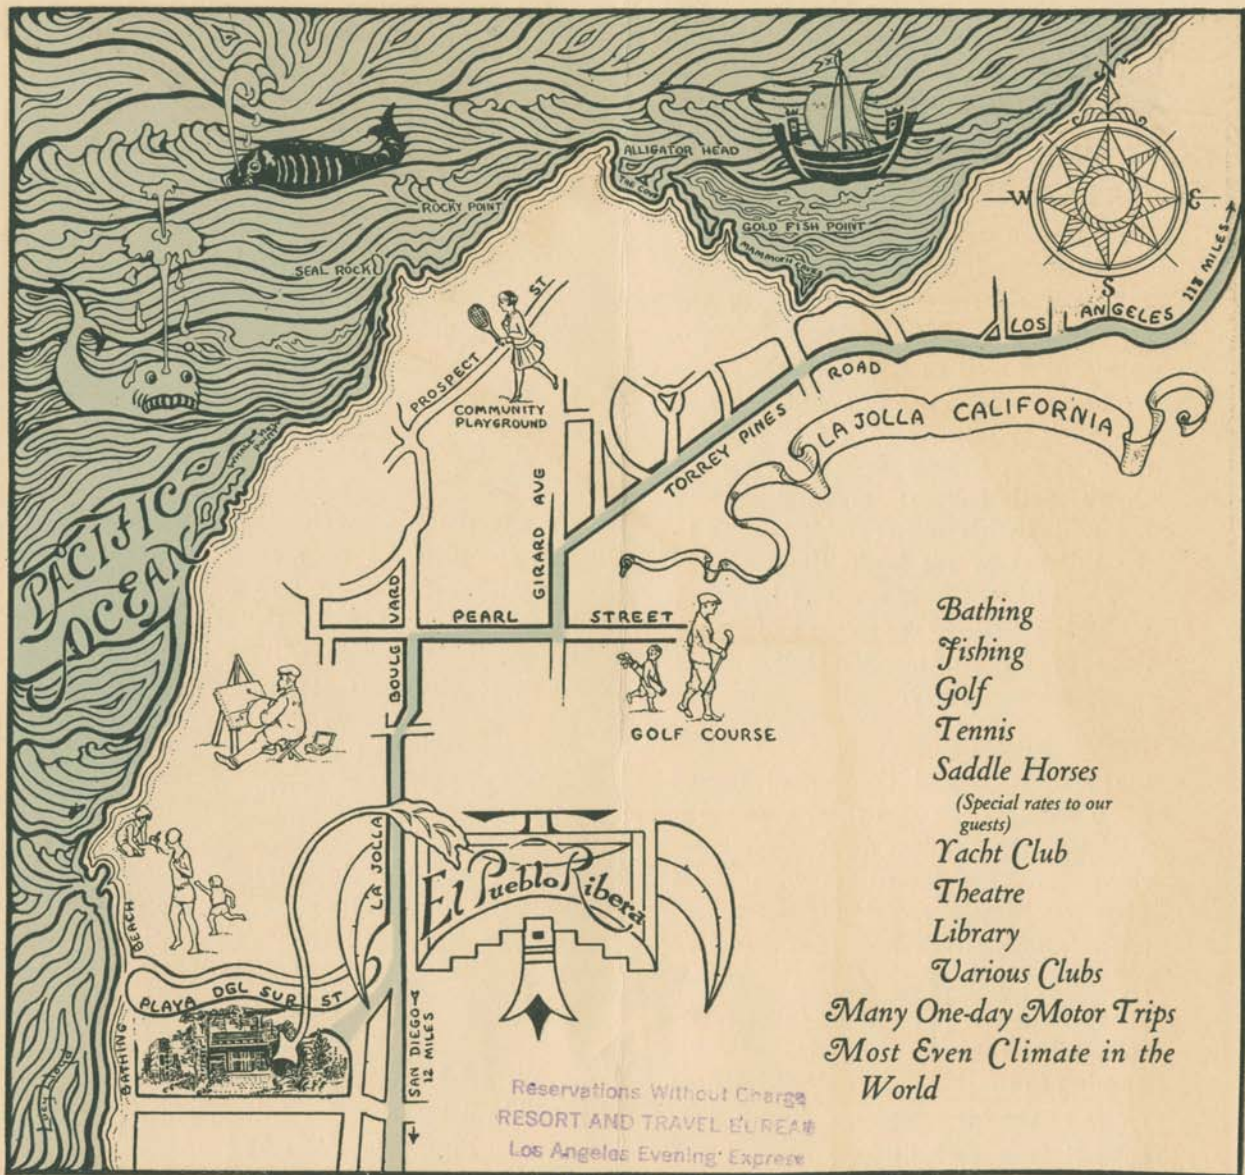 N
W
E
S
ALLIGATOR HEAD
THE COVE
ROCKY POINT
GOLD FISH POINT
MAMMOTH CAVES
SEAL ROCK
LOS ANGELES 118 MILES
PROSPECT ST.
COMMUNITY
PLAYGROUND
TORREY PINES ROAD
LA JOLLA CALIFORNIA
WHALE VIEW
POINT
PACIFIC
OCEAN
GIRARD AVE
PEARL STREET
LA JOLLA BOULEVARD
GOLF COURSE
El Pueblo Ribera
BATHING BEACH
PLAYA DEL SUR ST
SAN DIEGO
12 MILES
Bathing
Fishing
Golf
Tennis
Saddle Horses
(Special rates to our
guests)
Yacht Club
Theatre
Library
Various Clubs
Many One-day Motor Trips
Most Even Climate in the
World
Reservations Without Charge
RESORT AND TRAVEL BUREAU
Los Angeles Evening Express